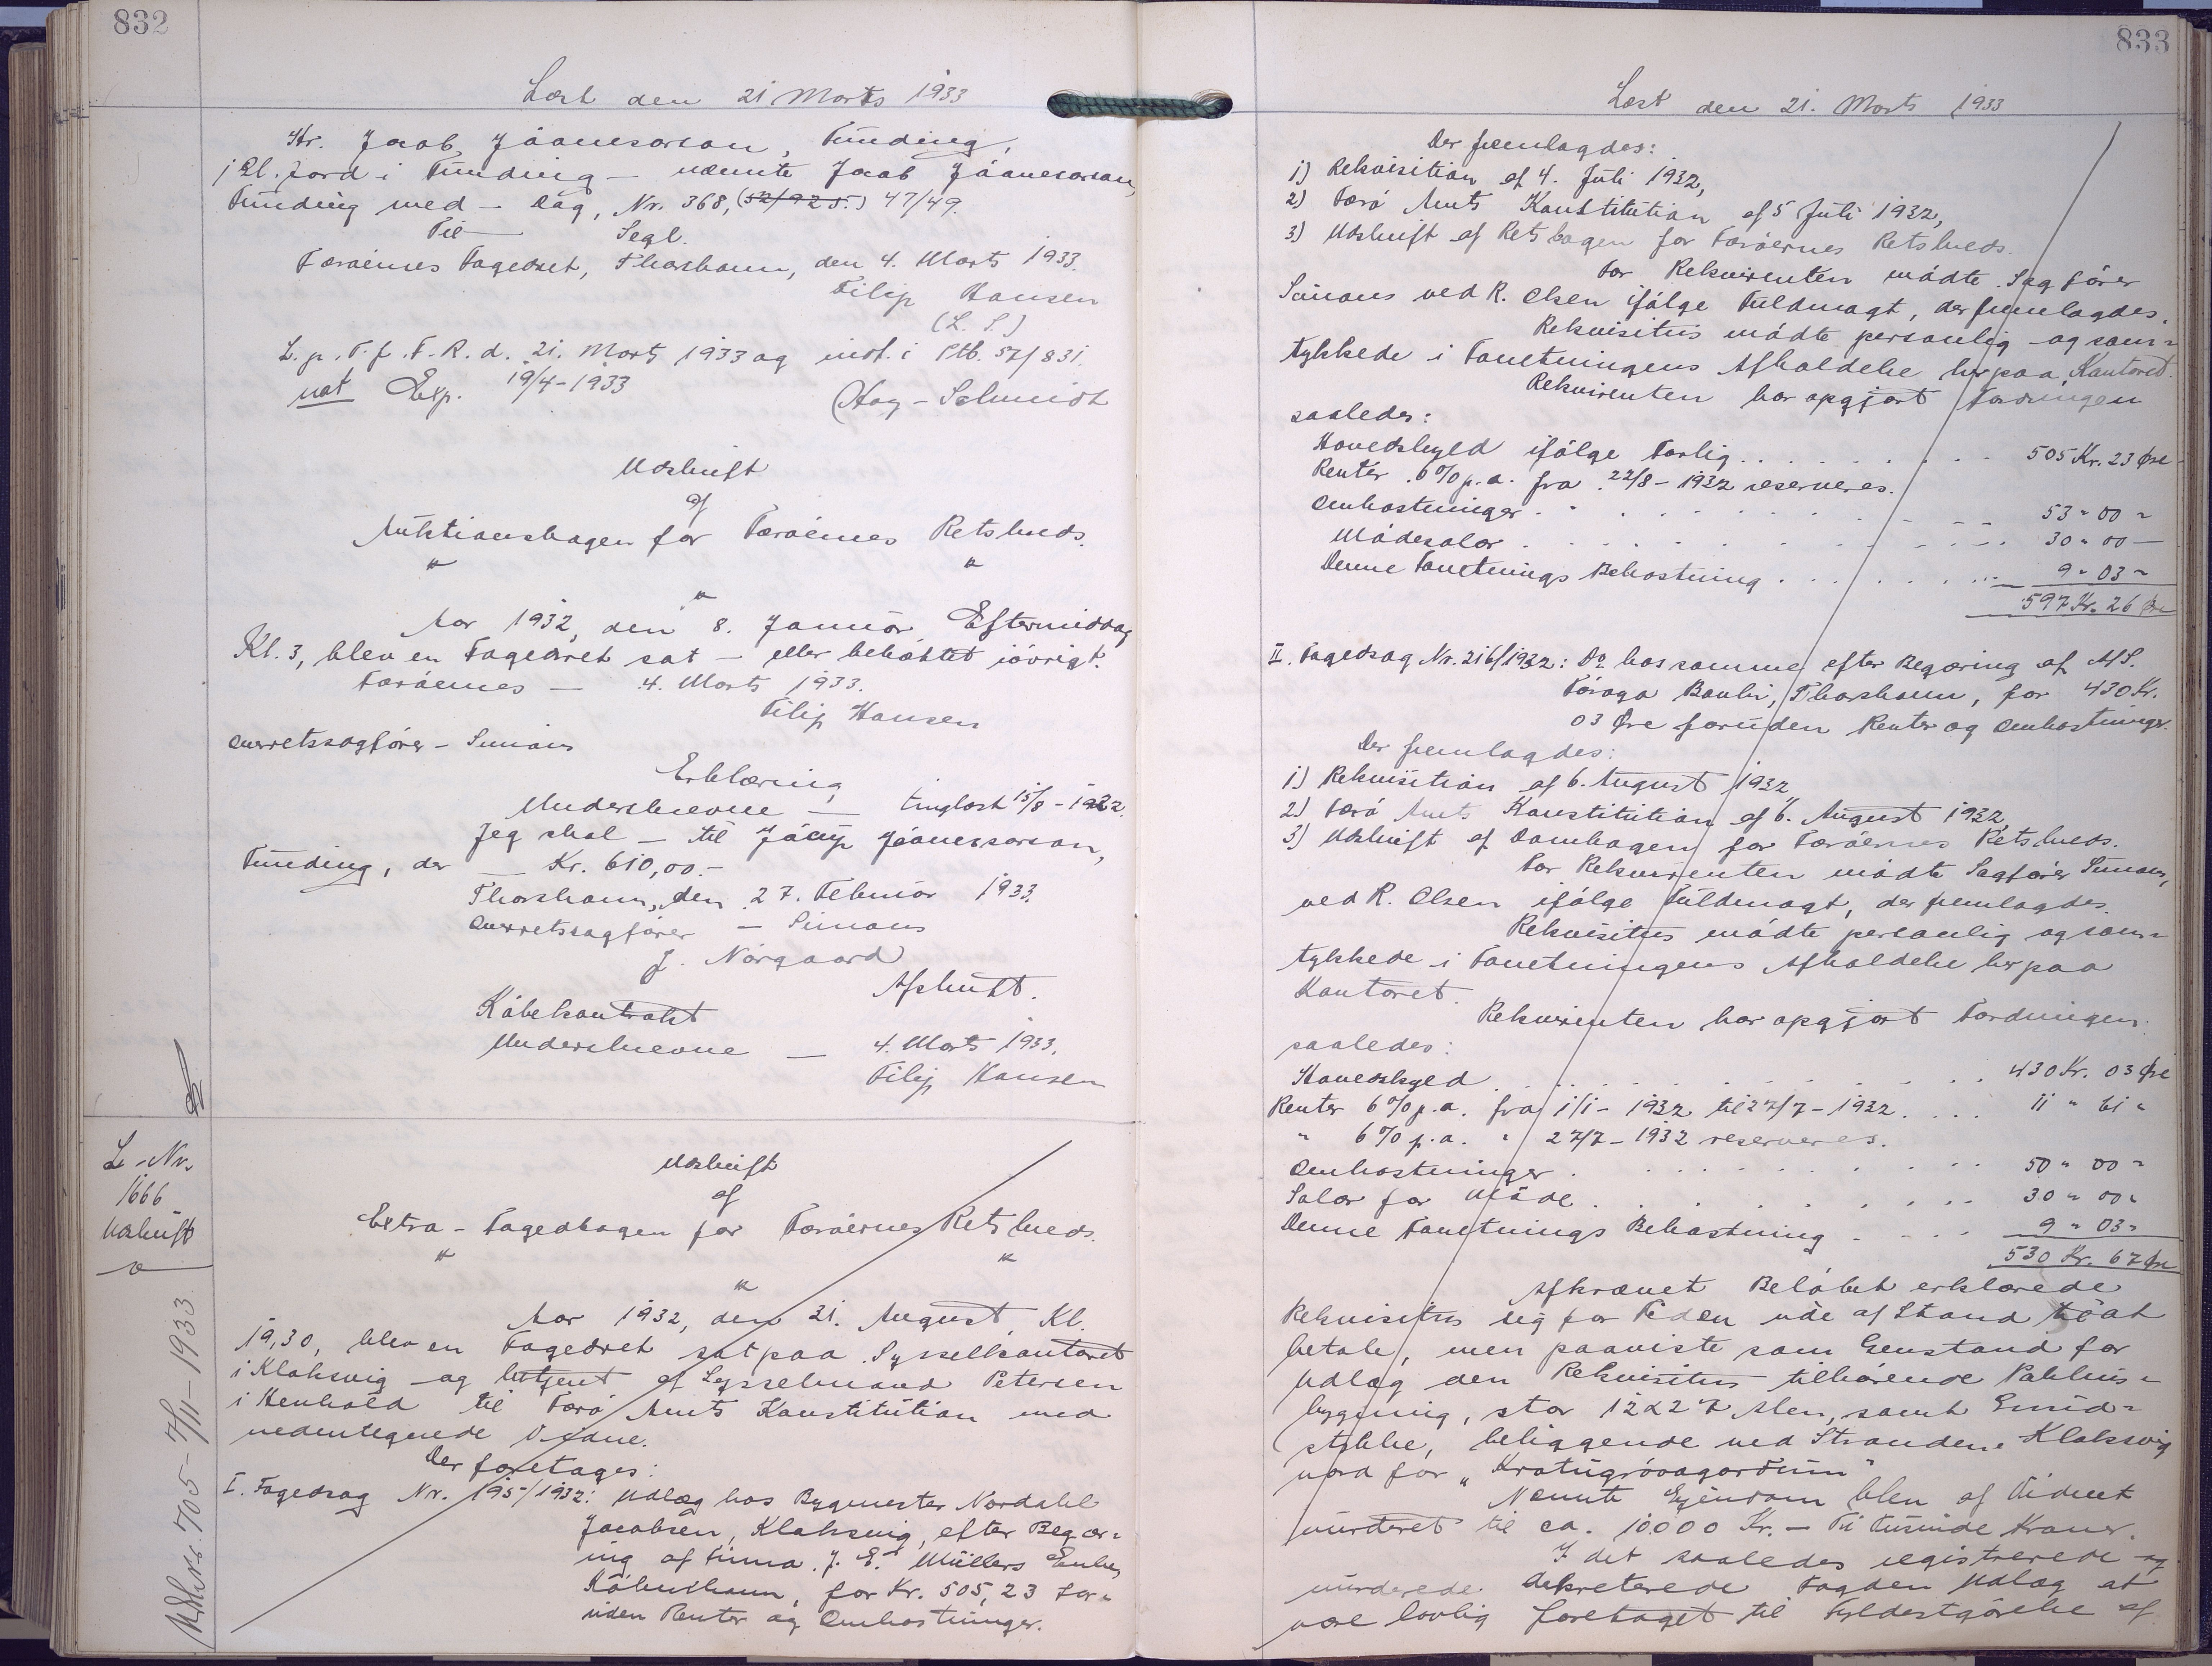 832
Læst den 21 Marts 1933
Hr. Jacob Jóanesarson, Funding,
1 Gl. Jord i Funding — nævnte Jacob Jóanesarson,
Funding med — Dag, Nr. 368, (52/925.) 47/49.
Til — Segl.
Færöernes Fogedret, Thorshavn, den 4. Marts 1933.
Filip Hansen
(L. S.)
L. p. T. f. F. R. d. 21. Marts 1933 og indf. i Ptb. 57/831.
not Exp. 19/4-1933
Hoy-Schmidt
Udskrift
af
Auktionsbogen for Færöernes Retskreds.
" "
"
Aar 1932, den 8. Januar Eftermiddag
Kl. 3, blev en Fogedret sat — eller behæftet iövrigt.
Færöernes — 4. Marts 1933.
Filip Hansen
Overretssagförer - Simons
Erklæring
Underskrevne — tinglæst 15/8-1922.
Jeg skal — til Jácup Jóanesarson,
Funding, der — Kr. 610,00.-
Thorshavn, den 27. Februar 1933.
Overretssagförer — Simons
J. Nörgaard
Afskrift.
Köbekontrakt
Underskrevne — 4. Marts 1933.
Filip Hansen
L-Nr.
1666
Udskrift
Udskrift
af
Extra-Fogedbogen for Færöernes Retskreds.
" "
"
Aar 1932, den 21. August, Kl.
19,30, blev en Fogedret sat paa Sysselkontoret
i Klaksvig og betjent af Sysselmand Petersen
i Henhold til Færö Amts Konstitution med
nedentegnede Vidne.
Der foretages:
I. Fogedsag Nr. 195/1932: Udlæg hos Bygmester Nordahl
Jacobsen, Klaksvig, efter Begær-
ing af Firma J. E. Müllers Enke,
Köbenhavn, for Kr. 505,23 for-
uden Renter og Omkostninger.
705 - 7/11-1933
833
Læst den 21. Marts 1933
Der fremlagdes:
1) Rekvisition af 4. Juli 1932,
2) Færö Amts Konstitution af 5 Juli 1932,
3) Udskrift af Retsbogen for Færöernes Retskreds.
For Rekvirenten mödte Sagförer
Simons ved R. Olsen ifölge Fuldmagt, der fremlagdes.
Rekvisitus mödte personlig og sam-
tykkede i Forretningens Afholdelse her paa Kontoret.
Rekvirenten har opgjort Fordringen
saaledes:
Hovedskyld ifölge Forlig . . . . . . . 505 Kr. 23 Øre
Renter 6% p.a. fra 22/8-1932 reserveres.
Omkostninger . . . . . . . 53 " 00 "
Mödesalær . . . . . . . 30 " 00 —
Denne Forretnings Bekostning . . . . . . . 9 " 03 "
597 Kr. 26 Øre
II. Fogedsag Nr. 216/1932: Do hos samme efter Begæring af A/S.
Föroya Banki, Thorshavn, for 430 Kr.
03 Øre foruden Renter og Omkostninger.
Der fremlagdes:
1) Rekvisition af 6. August 1932,
2) Færö Amts Konstitution af 6. August 1932,
3) Udskrift af Dombogen for Færöernes Retskreds.
For Rekvirenten mödte Sagförer Simons,
ved R. Olsen ifölge Fuldmagt, der fremlagdes.
Rekvisitus mödte personlig og sam-
tykkede i Forretningens Afholdelse her paa
Kontoret.
Rekvirenten har opgjort Fordringen
saaledes:
Hovedskyld . . . . . . . 430 Kr. 03 Øre
Renter 6% p.a. fra 1/1-1932 til 27/7-1932 . . . . 11 " 61 "
" 6% p.a. " 27/7-1932 reserveres.
Omkostninger . . . . . . . 50 " 00 "
Salær for Möde . . . . . . . 30 " 00 "
Denne Forretnings Bekostning . . . . 9 " 03 "
530 Kr. 67 Øre
Afkrævet Belöbet erklærede
Rekvisitus sig for Tiden ude af Stand til at
betale, men paaviste som Genstand for
Udlæg den Rekvisitus tilhörende Pakhus-
bygning, stor 12 x 27 Alen, samt Grund-
stykke, beliggende ved Stranden i Klaksvig
nord for "Kratugróvagardum"
Nævnte Ejendom blev af Vidnet
vurderet til ca. 10000 Kr. — Ti Tusinde Kroner.
I det saaledes registrerede og
vurderede dekreterede Fogden Udlæg at
være lovlig foretaget til Fyldestgörelse af